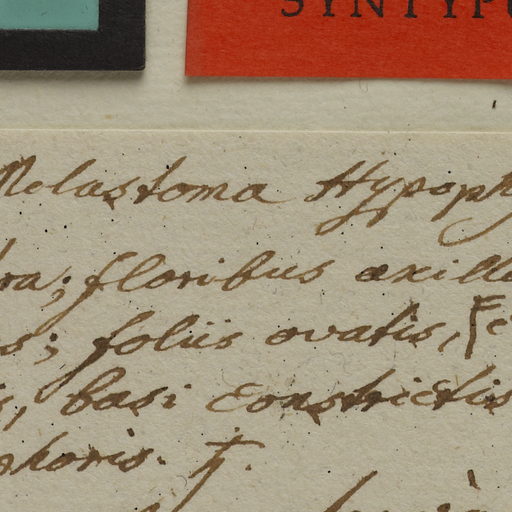 SYNTYPU
Melastoma Hypoph
bra; floribus axilla
s; foliis ovatis,
s, basi constrictis
phoris. ♄.